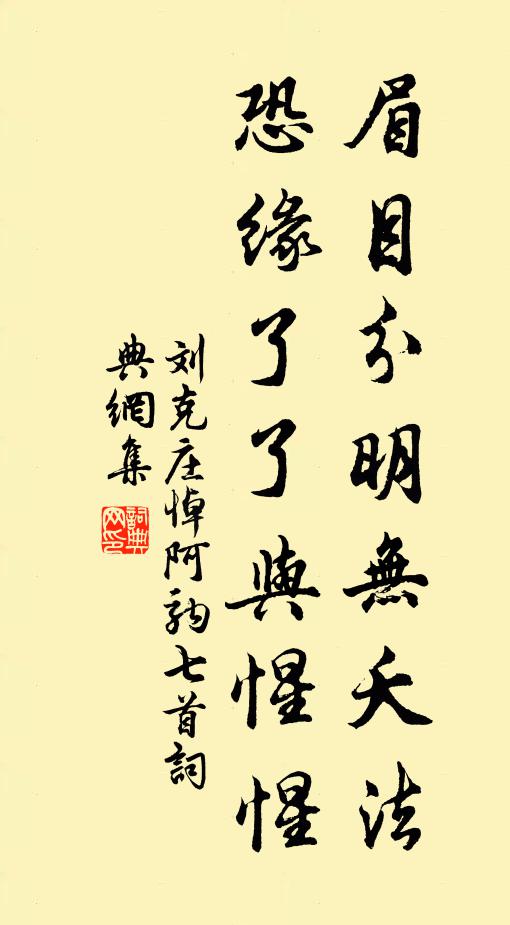 眉目分明無夭法
恐緣了了與惺惺
刘克庄悼阿駒七首詞
典網集
詞典網印